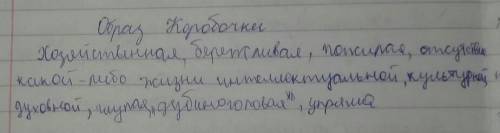 Образ Коробочки
Хозяйственная, бережливая, пожилая, отсутствие
какой-либо жизни интеллектуальной, культурной и
духовной, глупая, „дубиноголовая", упряма